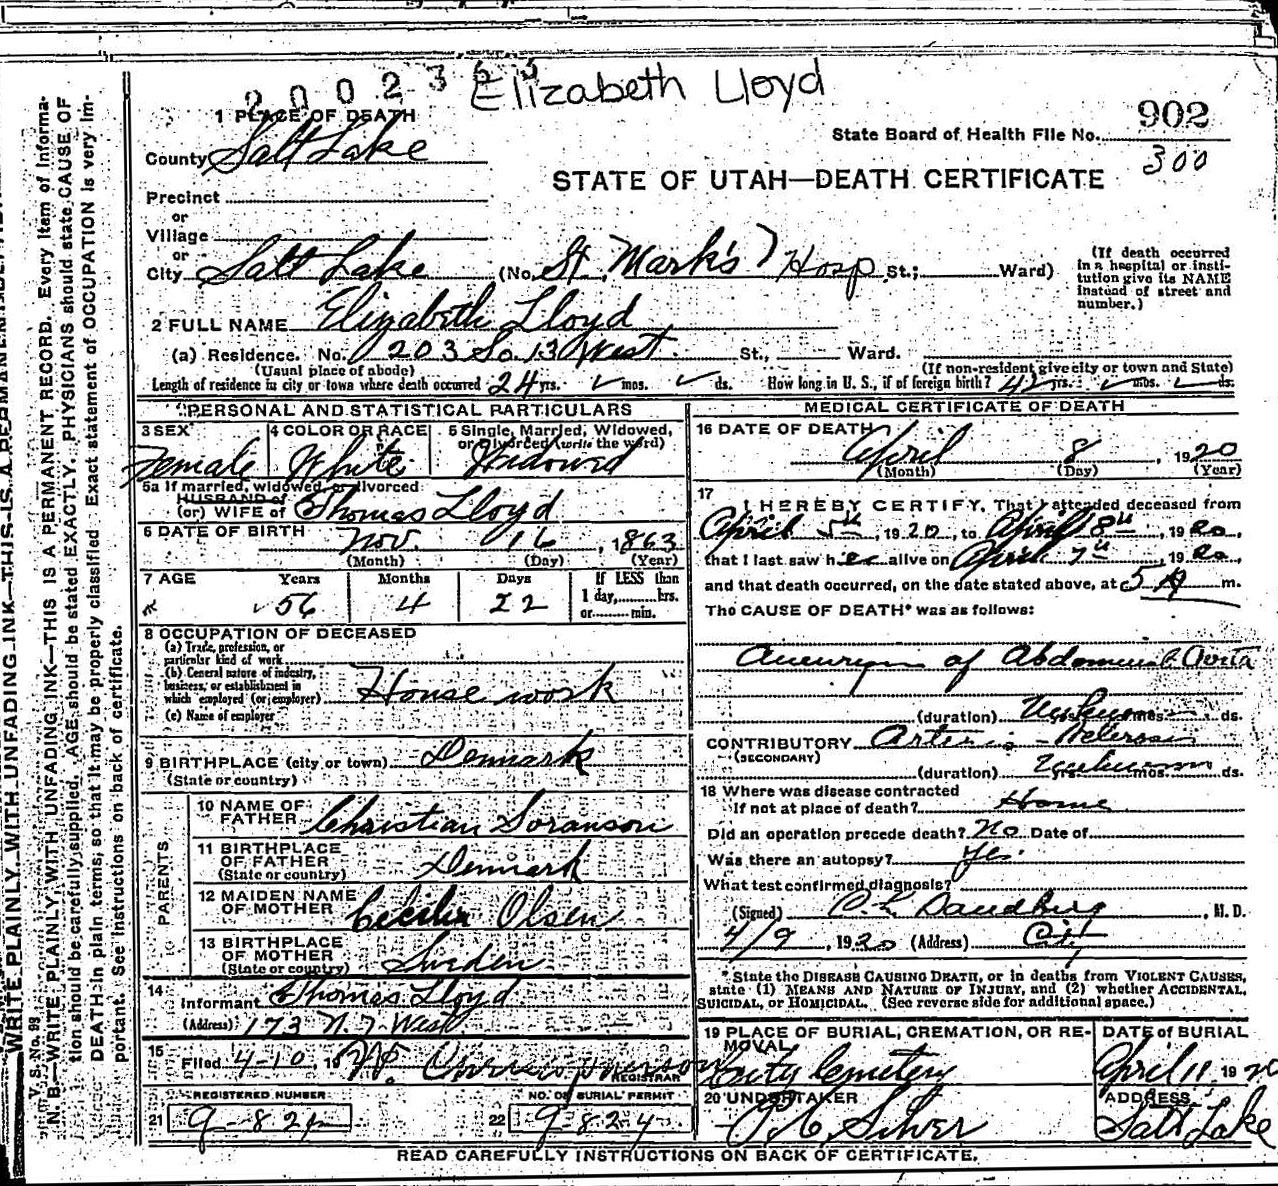 2002365
Elizabeth Lloyd
1 PLACE OF DEATH
County Salt Lake
State Board of Health File No. 902
300
STATE OF UTAH—DEATH CERTIFICATE
Precinct
or
Village
or
City Salt Lake (No. St. Mark's Hosp St.; Ward)
(If death occurred in a hospital or insti-
tution give its NAME
instead of street and
number.)
2 FULL NAME Elizabeth Lloyd
(a) Residence. No. 203 So. 13 West St., Ward.
(Usual place of abode) (If non-resident give city or town and State)
Length of residence in city or town where death occurred 24 yrs. mos. ds. How long in U. S., if of foreign birth? 42 yrs. mos. ds.
PERSONAL AND STATISTICAL PARTICULARS
3 SEX Female
4 COLOR OR RACE White
5 Single, Married, Widowed,
or Divorced (write the word)
Widowed
5a If married, widowed, or divorced
HUSBAND of
(or) WIFE of Thomas Lloyd
6 DATE OF BIRTH Nov. 16, 1863
(Month) (Day) (Year)
7 AGE Years Months Days If LESS than
56 4 22 1 day, hrs.
or min.
8 OCCUPATION OF DECEASED
(a) Trade, profession, or
particular kind of work
(b) General nature of industry,
business, or establishment in
which employed (or employer) House work
(c) Name of employer
9 BIRTHPLACE (city or town) Denmark
(State or country)
PARENTS
10 NAME OF
FATHER Christian Soranson
11 BIRTHPLACE
OF FATHER Denmark
(State or country)
12 MAIDEN NAME
OF MOTHER Cecilia Olsen
13 BIRTHPLACE
OF MOTHER Sweden
(State or country)
14
Informant Thomas Lloyd
(Address) 173 N. 7 West
15
Filed 4-10, 19
REGISTRAR
REGISTERED NUMBER
21
NO. OF BURIAL PERMIT
22 9-824
MEDICAL CERTIFICATE OF DEATH
16 DATE OF DEATH April 8, 1920
(Month) (Day) (Year)
17
I HEREBY CERTIFY, That I attended deceased from
April 5th, 1920, to April 8th, 1920,
that I last saw her alive on April 7th, 1920,
and that death occurred, on the date stated above, at 5 A m.
The CAUSE OF DEATH* was as follows:
Aneurysm of Abdominal Aorta
(duration) Unknown mos. ds.
CONTRIBUTORY Arterio-Sclerosis
(SECONDARY)
(duration) Unknown mos. ds.
18 Where was disease contracted
If not at place of death? Home
Did an operation precede death? No Date of
Was there an autopsy? Yes.
What test confirmed diagnosis?
(Signed) , M. D.
4/9, 1920 (Address) City
*State the DISEASE CAUSING DEATH, or in deaths from VIOLENT CAUSES,
state (1) MEANS AND NATURE OF INJURY, and (2) whether ACCIDENTAL,
SUICIDAL, or HOMICIDAL. (See reverse side for additional space.)
19 PLACE OF BURIAL, CREMATION, OR RE-
MOVAL
City Cemetery
DATE of BURIAL
April 11, 1920
20 UNDERTAKER
Silver
ADDRESS
Salt Lake
READ CAREFULLY INSTRUCTIONS ON BACK OF CERTIFICATE.
WRITE PLAINLY WITH UNFADING INK—THIS IS A PERMANENT
V. S. No. 99
N. B.—WRITE PLAINLY, WITH UNFADING INK—THIS IS A PERMANENT RECORD. Every item of informa-
tion should be carefully supplied. AGE should be stated EXACTLY. PHYSICIANS should state CAUSE OF
DEATH in plain terms, so that it may be properly classified. Exact statement of OCCUPATION is very im-
portant. See instructions on back of certificate.